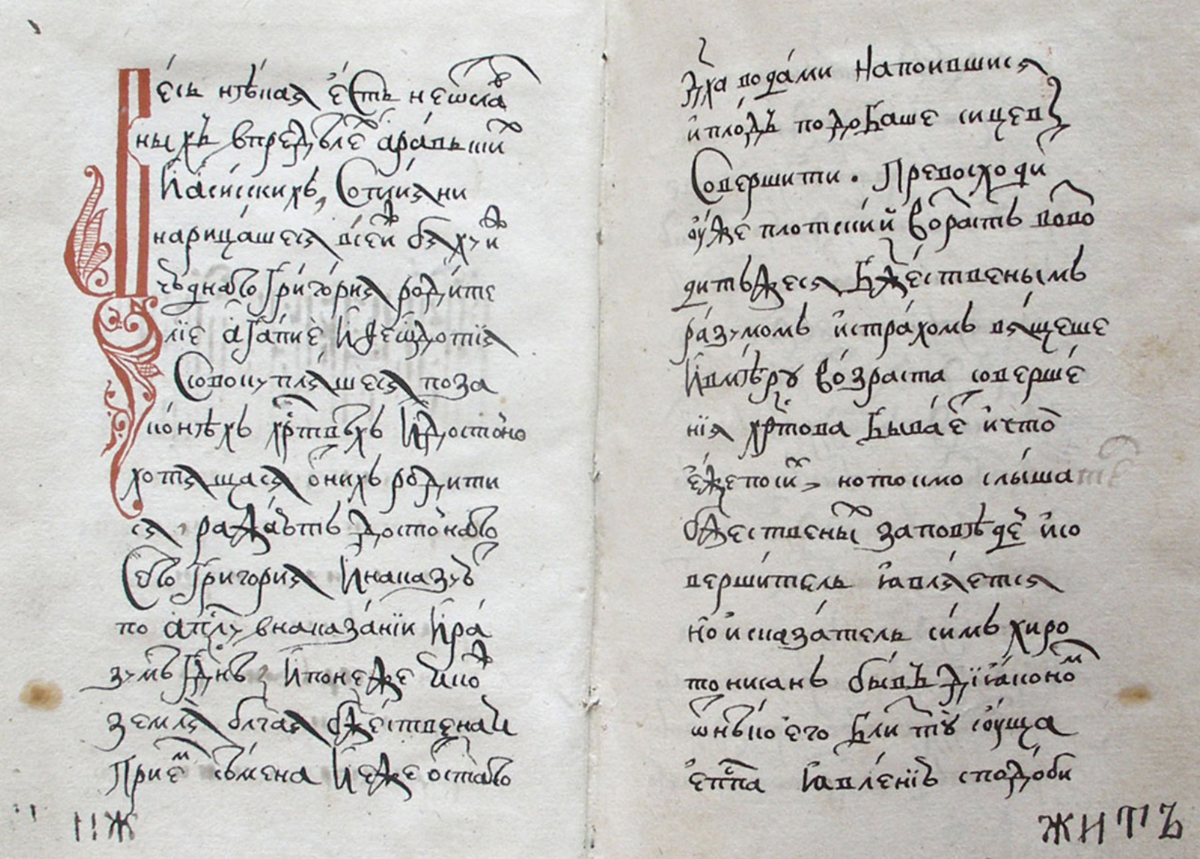 есь нѣкая є҆сть неѿслав
ныхъ впредѣле а҆равьпїи
Касисскихъ, Сотиіани
нарицашеся всей бяху и҆
чюднаго Григорїя родите
лїе а҆гапие И҆ѳеѡдотїя
Совокупляшеся поза
конѣхъ хрⷭ҇товѣхъ И҆достоно
хотящася ѿ нихъ родити
ся раждаютъ достонаго
Сего Григория Инаказую
по апⷭ҇лу внаказании Ира
зумѣ гдⷭ҇нѣ, И҆понеже и҆ко
земля блгая бжественаи
Прием сѣмена Иеже ѿ ставо
дх҃а водами напоившися
и҆плодъ подобаше сицевъ
Совершити. Превосходи
оу҆же плотский возрастъ вово
дитъжеся Бжественымъ
разумомъ и҆страхомъ вящеше
И҆вмѣру возраста соверше
нїя хрⷭ҇това бывает и҆что
є҆жепоси, нотокмо слыша
бжественых заповѣдей и҆со
вершитель ꙗ҆вляется
но и҆сказатель симъ хиро
тонисанъ бывъ дїꙗ҆коном
ѿнѣкоего Близ ту соуща
є҆пⷭ҇кпа ꙗ҆вленїю сподоби
жит
житъ